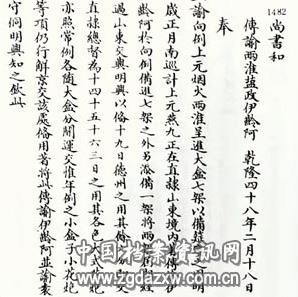 1482
尚書和
傳諭兩淮鹽政伊齡阿 乾隆四十八年二月十八日
奉
諭向例上元烟火兩淮呈進大盒七架以備筵明
歲正月南巡計上元燕九正在直隸山東境內傳伊
齡阿於向例備進七架之外另添備一架將兩架經
過山東交明興以備十九日德州之用其餘六架交
直隸總督為十四十五十六三日之用其各色大式花
亦照常例各隨大盒分開運交惟年例之小盒小花炮
等項仍行解京交該處備用著將此傳諭伊齡阿並諭袁
守侗明興知之欽此
中国档案资讯网
www.zgdazxw.com.cn